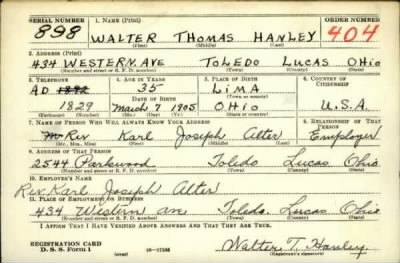 SERIAL NUMBER 1. NAME (Print) ORDER NUMBER
898 WALTER THOMAS HANLEY 404
(First) (Middle) (Last)
2. ADDRESS (Print)
434 WESTERN. AVE TOLEDO LUCAS OHIO
(Number and street or R. F. D. number) (Town) (County) (State)
3. TELEPHONE 4. AGE IN YEARS 5. PLACE OF BIRTH 6. COUNTRY OF CITIZENSHIP
AD. 35 LIMA
DATE OF BIRTH (Town or county)
1829 March 7 1905 OHIO U.S.A.
(Exchange) (Number) (Mo.) (Day) (Yr.) (State or country)
7. NAME OF PERSON WHO WILL ALWAYS KNOW YOUR ADDRESS 8. RELATIONSHIP OF THAT PERSON
Rev Karl Joseph Alter Employer
(Mr., Mrs., Miss) (First) (Middle) (Last)
9. ADDRESS OF THAT PERSON
2544 Parkwood Toledo Lucas Ohio
(Number and street or R. F. D. number) (Town) (County) (State)
10. EMPLOYER'S NAME
Rev. Karl Joseph Alter
11. PLACE OF EMPLOYMENT OR BUSINESS
434 Western ave Toledo. Lucas Ohio
(Number and street or R. F. D. number) (Town) (County) (State)
I AFFIRM THAT I HAVE VERIFIED ABOVE ANSWERS AND THAT THEY ARE TRUE.
REGISTRATION CARD
D. S. S. Form 1 (over) Walter T. Hanley
(Registrant's signature)